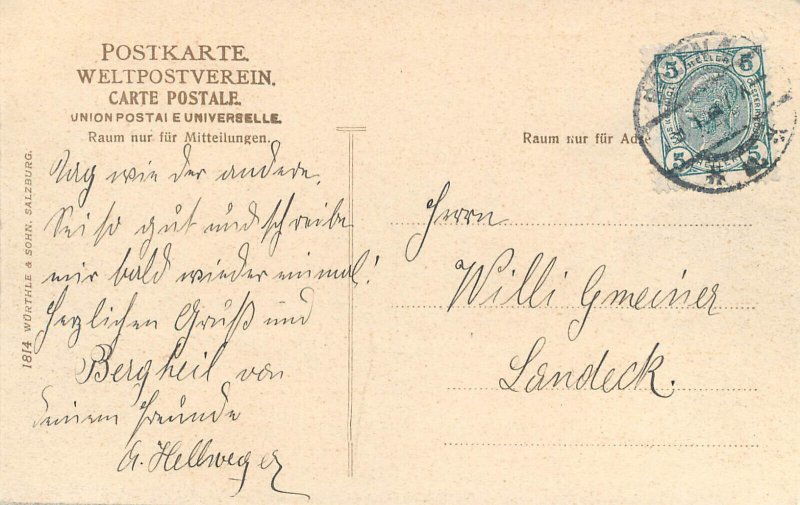 POSTKARTE.
WELTPOSTVEREIN.
CARTE POSTALE.
UNION POSTALE UNIVERSELLE.
Raum nur für Mitteilungen.
Tag wie der andere.
Sei so gut und schreibe
mir bald wieder einmal!
Herzlichen Gruß und
Bergheil von
deinem Freunde
A. Hellweger
1814 WÜRTHLE & SOHN. SALZBURG.
Raum nur für Ad
5 HELLER 5
5 5
Herrn
Willi Gmeiner
Landeck.